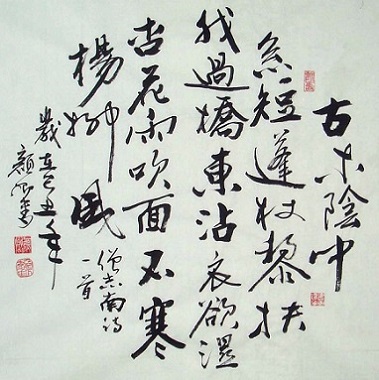 古木陰中
系短蓬杖黎扶
我過橋東沾衣欲濕
杏花雨吹面不寒
楊柳風
僧志南詩
一首
歲丑年
顏書